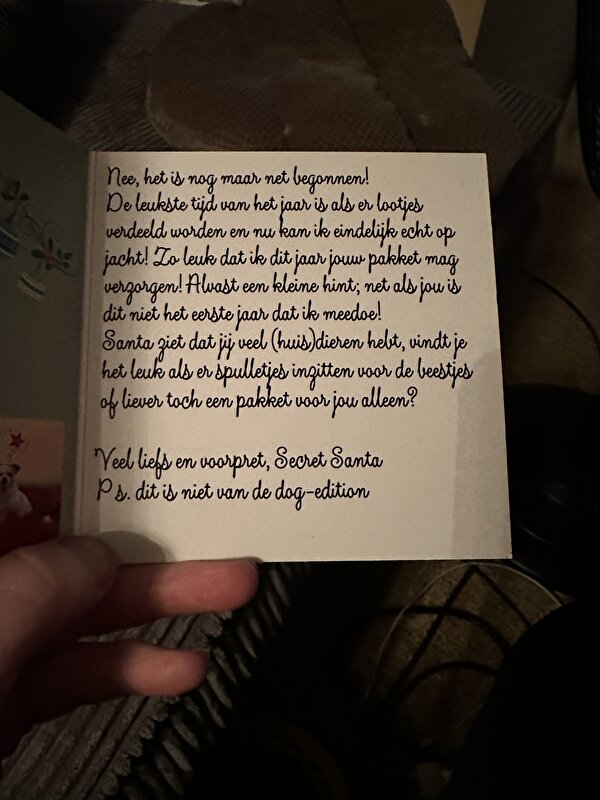 Nee, het is nog maar net begonnen!
De leukste tijd van het jaar is als er lootjes
verdeeld worden en nu kan ik eindelijk echt op
jacht! Zo leuk dat ik dit jaar jouw pakket mag
verzorgen! Alvast een kleine hint; net als jou is
dit niet het eerste jaar dat ik meedoe!
Santa ziet dat jij veel (huis)dieren hebt, vindt je
het leuk als er spulletjes inzitten voor de beestjes
of liever toch een pakket voor jou alleen?
Veel liefs en voorpret, Secret Santa
Ps. dit is niet van de dog-edition